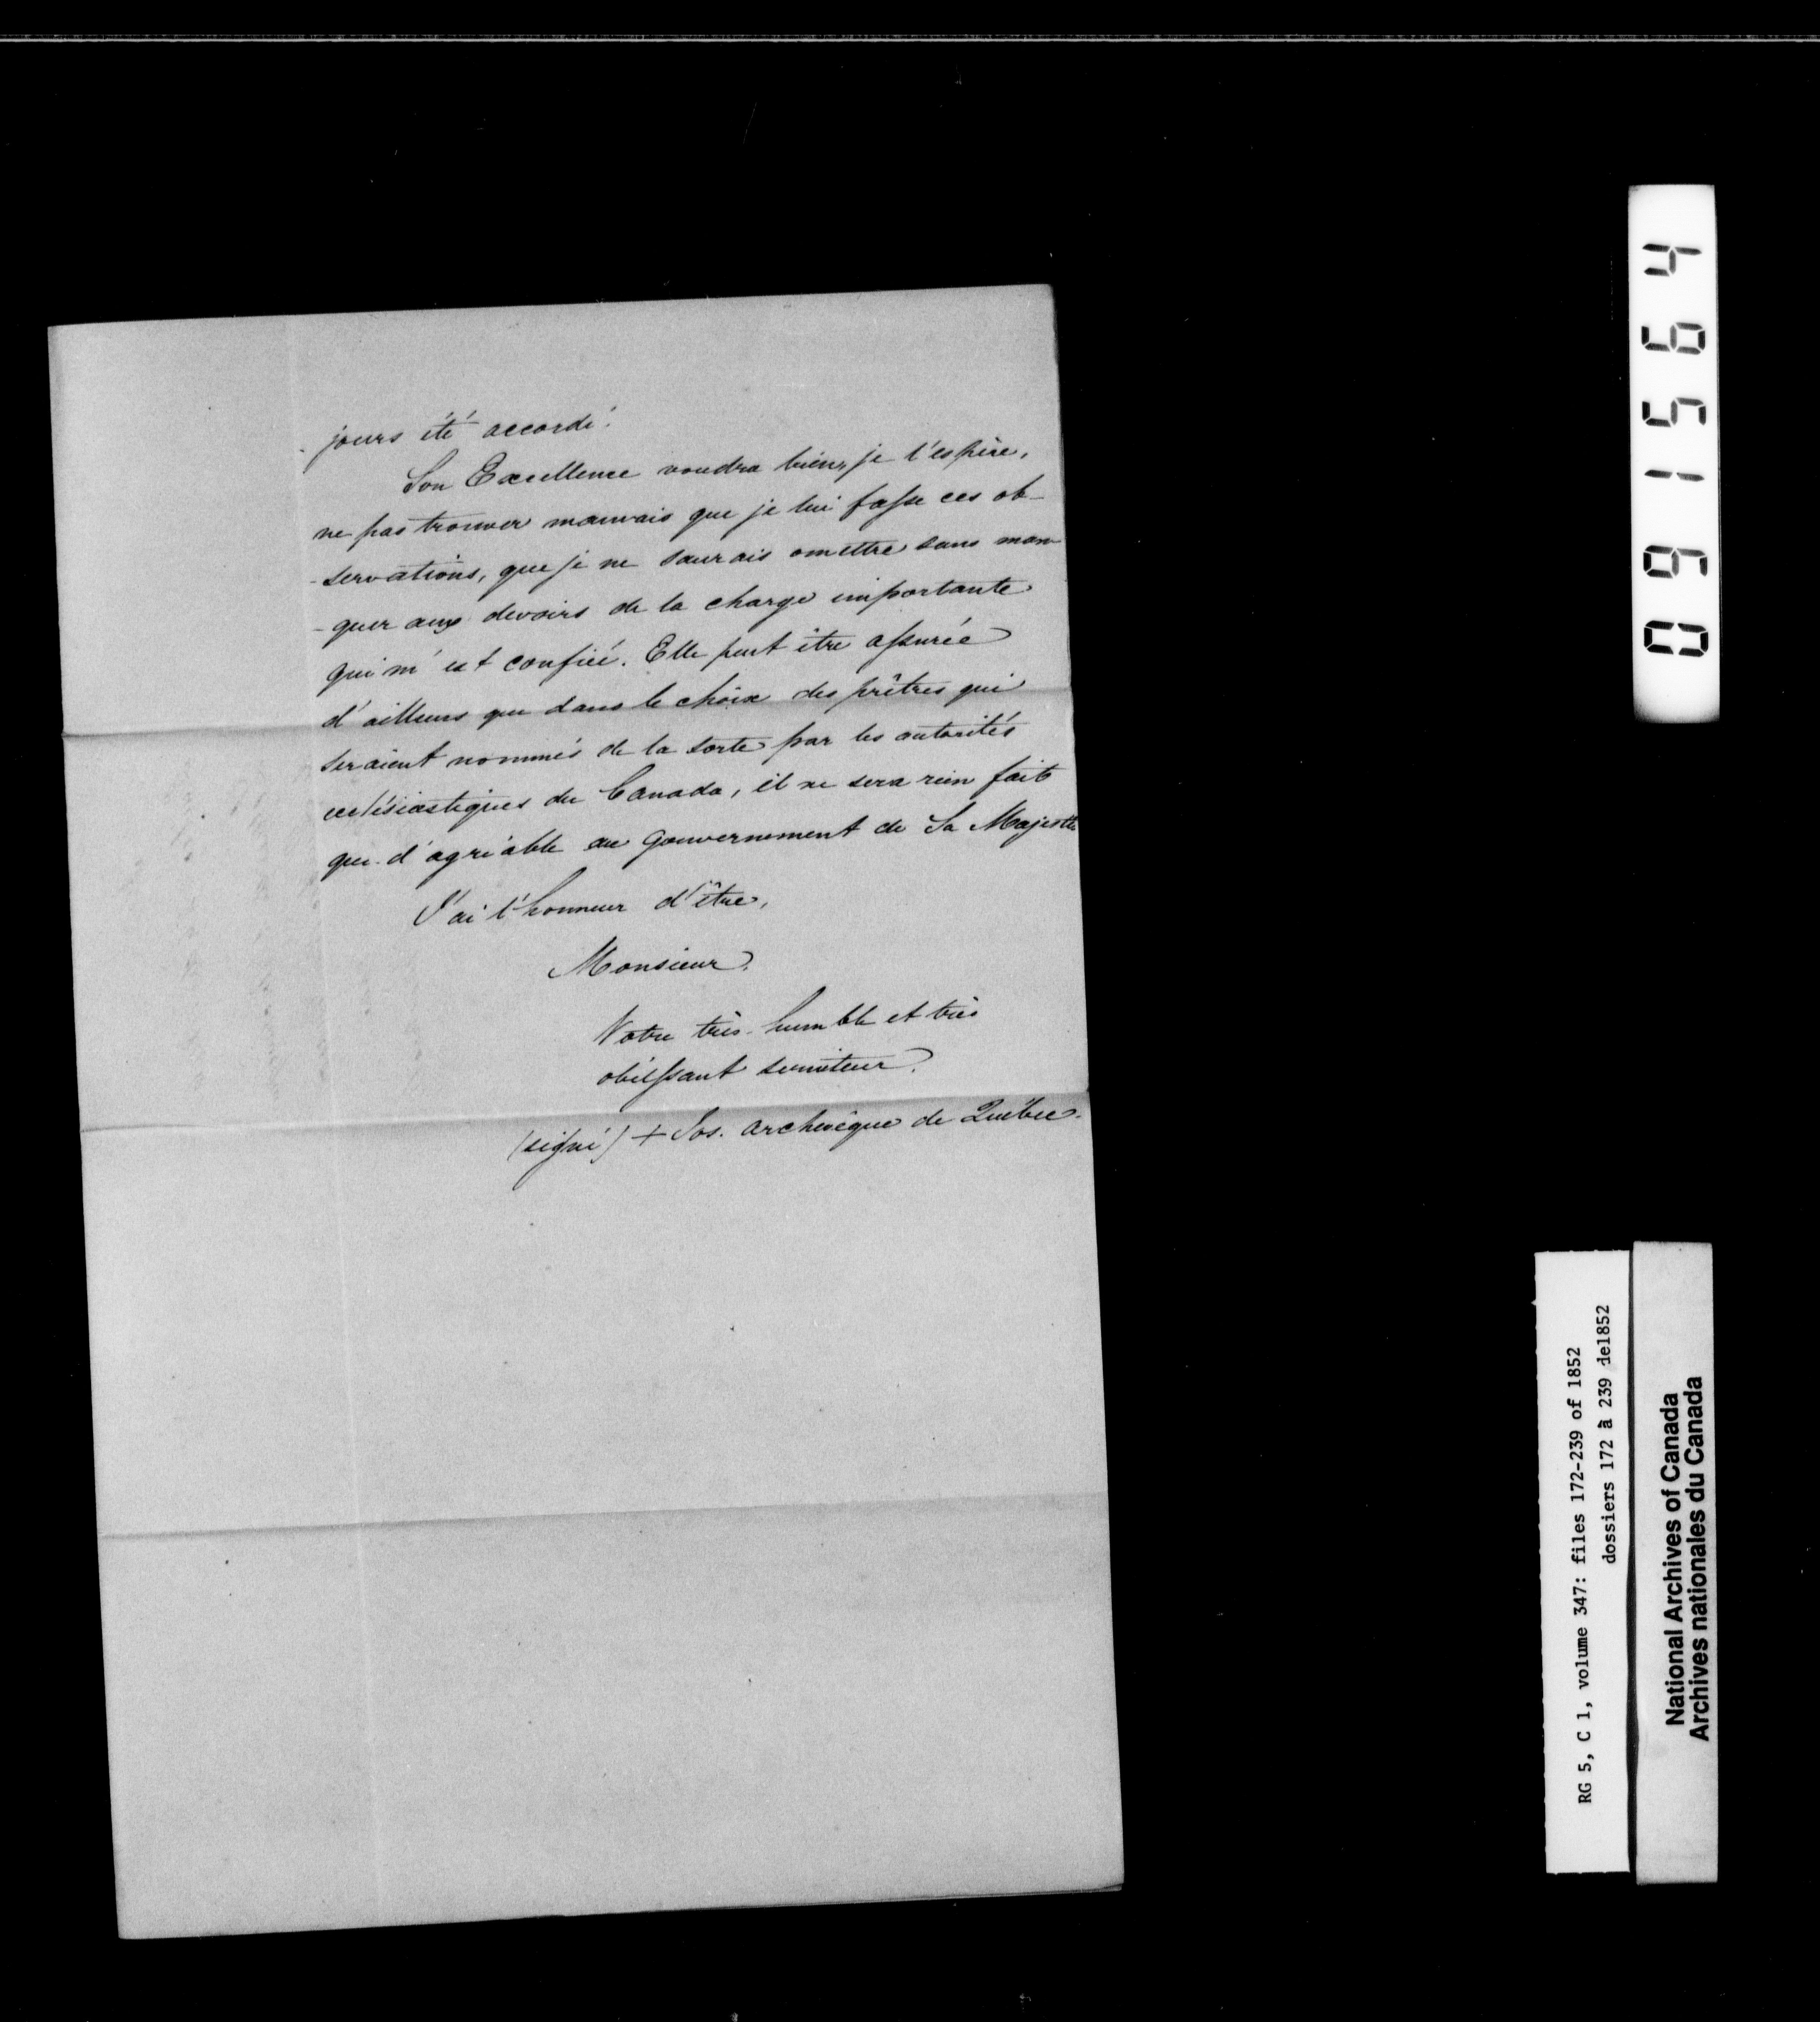 jours été accordé.
Son Excellence voudra bien, je l'espère,
ne pas trouver mauvais que je lui fasse ces ob-
-servations, que je ne saurais omettre sans man-
-quer aux devoirs de la charge importante
qui m'est confiée. Elle peut être assurée
d'ailleurs que dans le choix des prêtres qui
seraient nommés de la sorte par les autorités
ecclésiastiques du Canada, il ne sera rien fait
que d'agréable au Gouvernement de Sa Majesté
J'ai l'honneur d'être,
Monsieur,
Votre très-humble et très
obéissant serviteur.
(signé) + Jos. archevêque de Québec.
091564
RG 5, C 1, volume 347: files 172-239 of 1852
dossiers 172 à 239 de1852
National Archives of Canada
Archives nationales du Canada